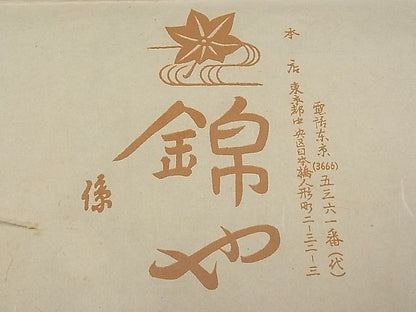 本店 東京都中央区日本橋人形町二ー三二ー三
電話东京(3666)五三六一番(代)
錦や
係